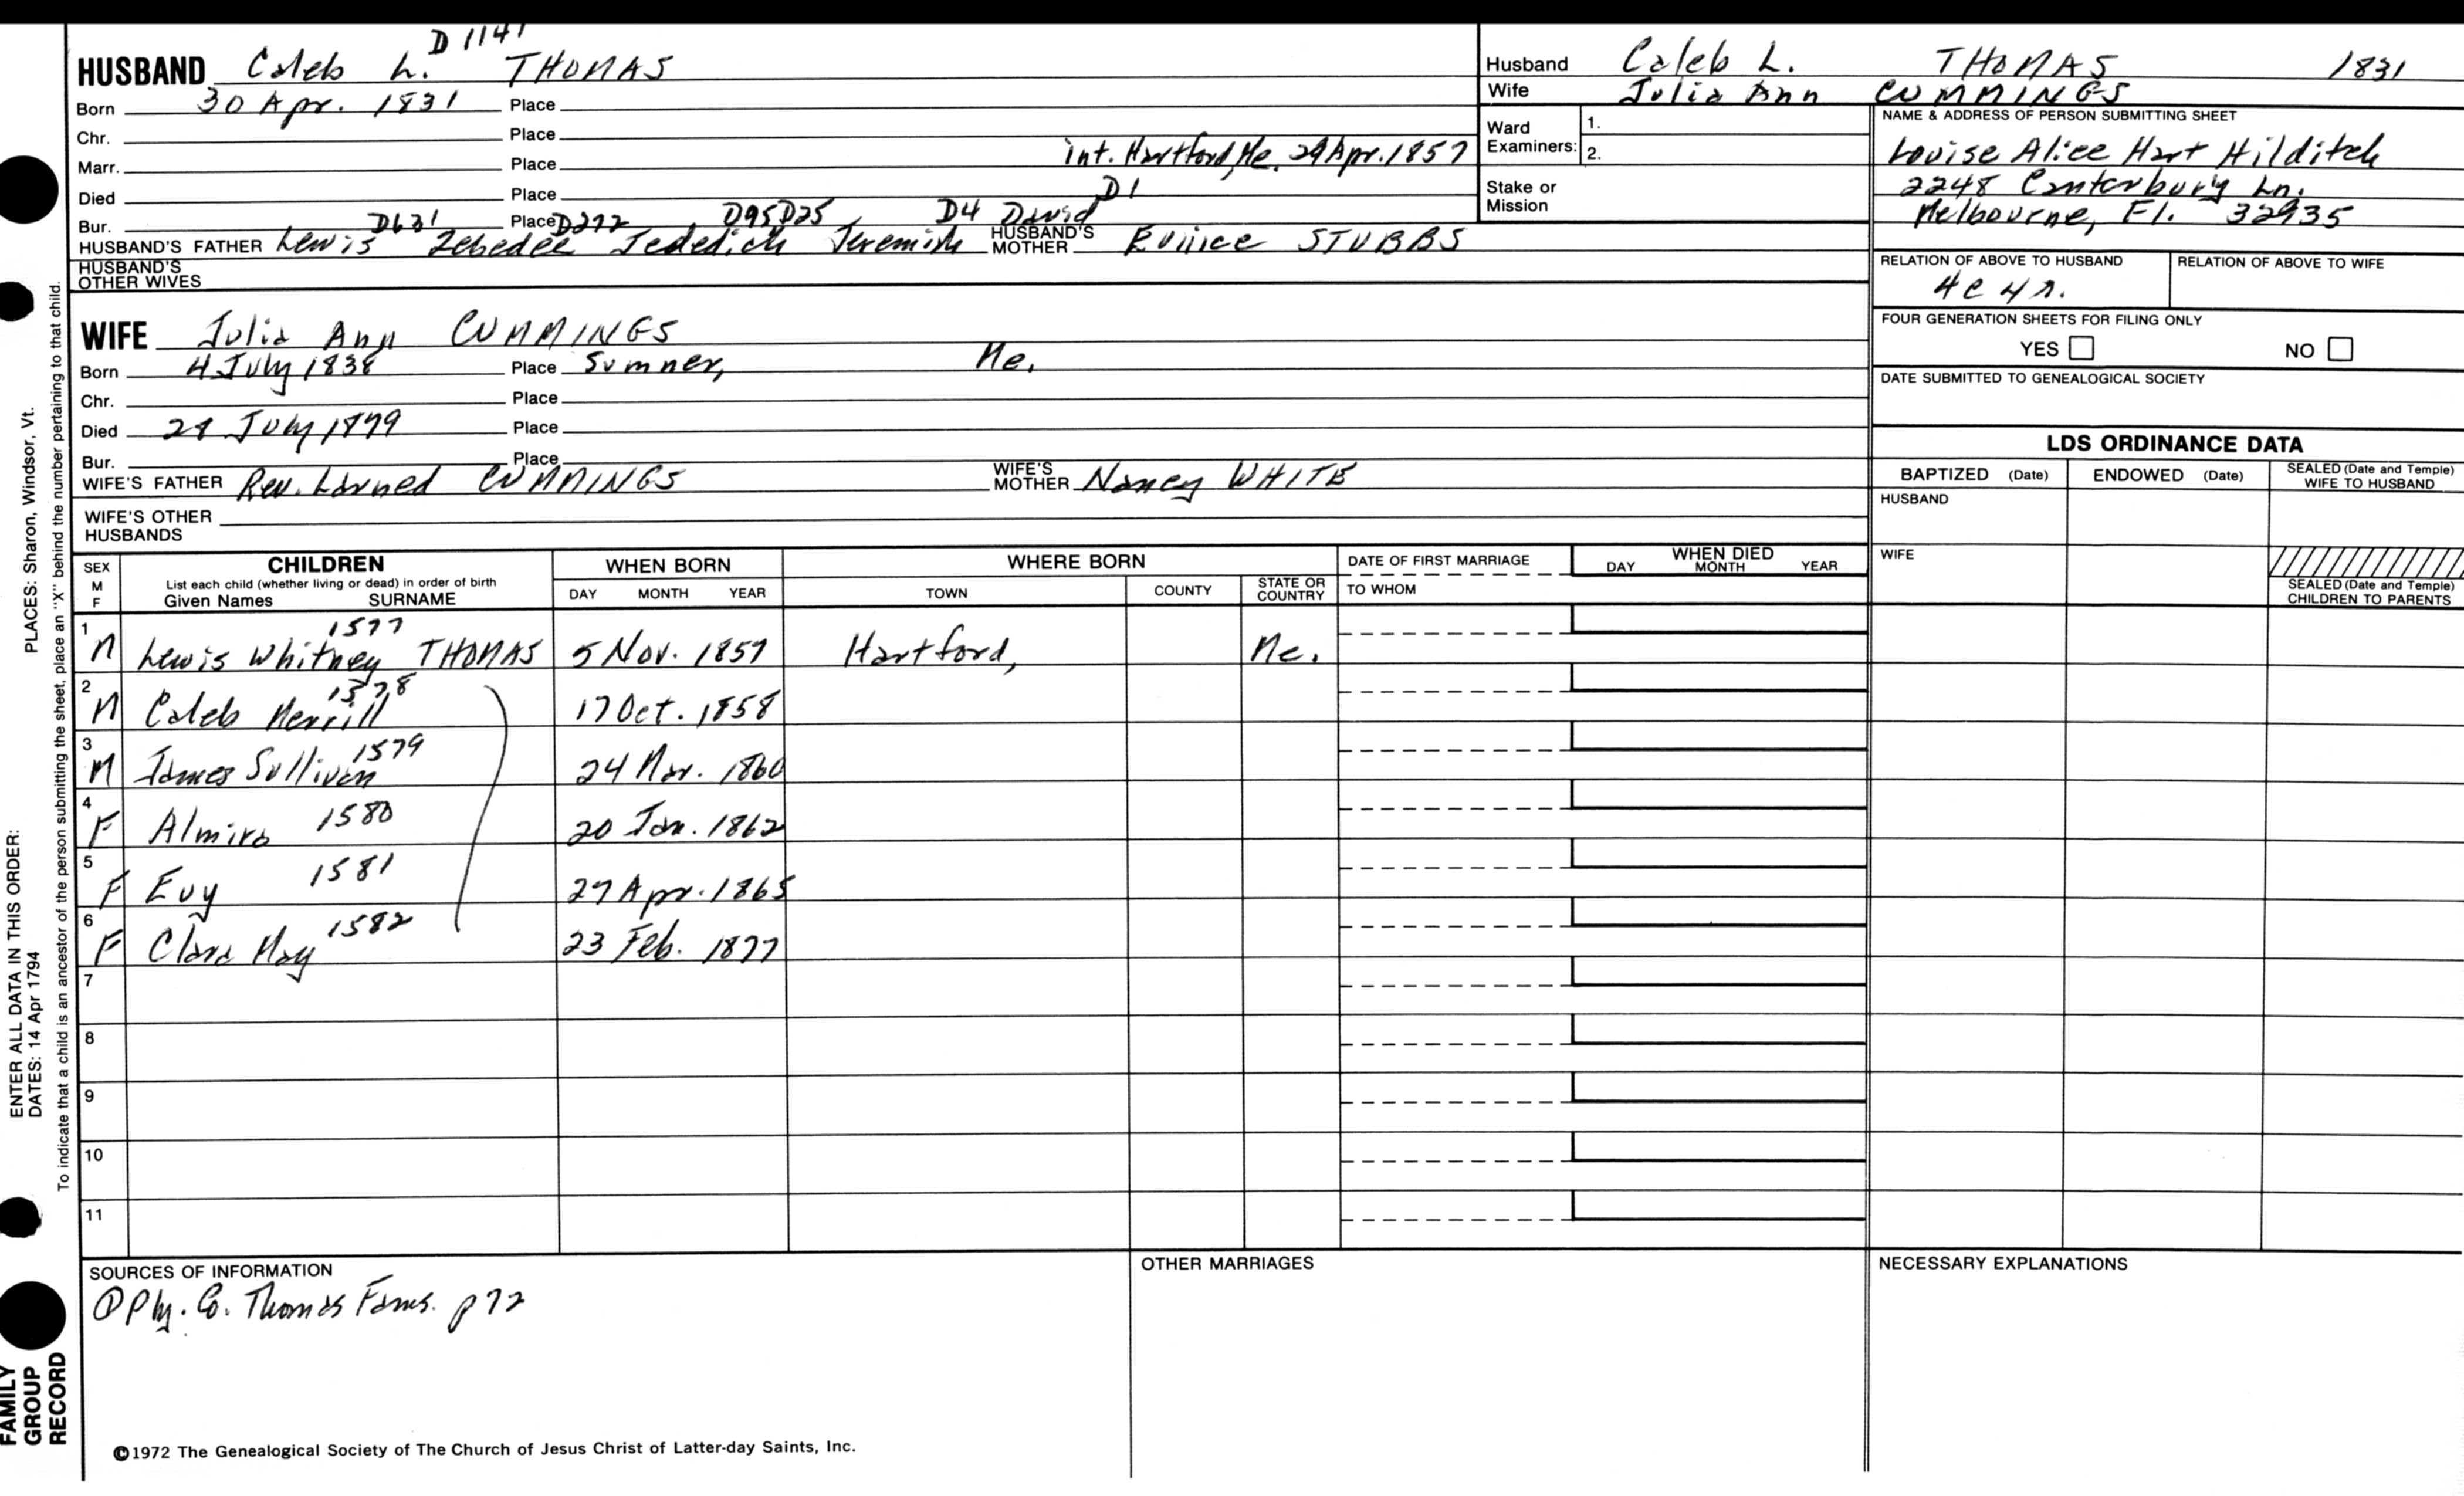 D 1141
HUSBAND Caleb L. THOMAS
Born 30 Apr. 1831 Place
Chr. Place
Marr. Place int. Hartford, Me. 29 Apr. 1857
Died Place D1
Bur. D631 Place D272 D95 D25 D4 David
HUSBAND'S FATHER Lewis Zebedee Jedediah Jeremiah HUSBAND'S MOTHER Eunice STUBBS
HUSBAND'S
OTHER WIVES
WIFE Julia Ann CUMMINGS
Born 4 July 1838 Place Sumner, Me.
Chr. Place
Died July Place
Bur. Place
WIFE'S FATHER Rev. Larned CUMMINGS WIFE'S MOTHER Nancy WHITE
WIFE'S OTHER
HUSBANDS
Husband Caleb L. THOMAS 1831
Wife Julia Ann CUMMINGS
Ward
Examiners: 1.
2.
Stake or
Mission
NAME & ADDRESS OF PERSON SUBMITTING SHEET
Louise Alice Hart Hilditch
2248 Canterbury Ln.
Melbourne, Fl. 32935
RELATION OF ABOVE TO HUSBAND RELATION OF ABOVE TO WIFE
4c 4r.
FOUR GENERATION SHEETS FOR FILING ONLY
YES NO
DATE SUBMITTED TO GENEALOGICAL SOCIETY
LDS ORDINANCE DATA
BAPTIZED (Date) ENDOWED (Date) SEALED (Date and Temple)
WIFE TO HUSBAND
HUSBAND
WIFE
SEALED (Date and Temple)
CHILDREN TO PARENTS
SEX
M
F
CHILDREN
List each child (whether living or dead) in order of birth
Given Names SURNAME
WHEN BORN
DAY MONTH YEAR
WHERE BORN
TOWN COUNTY STATE OR
COUNTRY
DATE OF FIRST MARRIAGE
TO WHOM
WHEN DIED
DAY MONTH YEAR
1577
1 M Lewis Whitney THOMAS 5 Nov. 1857 Hartford, Me.
1578
2 M Caleb Merrill 17 Oct. 1858
1579
3 M James Sullivan 24 Mar. 1860
4 F Almira 1580 20 Jan. 1862
5 F Evy 1581 27 Apr. 1865
6 F Clara May 1582 23 Feb. 1877
7
8
9
10
11
SOURCES OF INFORMATION
① Ply. Co. Thomas Fams. p 72
OTHER MARRIAGES
NECESSARY EXPLANATIONS
©1972 The Genealogical Society of The Church of Jesus Christ of Latter-day Saints, Inc.
ENTER ALL DATA IN THIS ORDER:
DATES: 14 Apr 1794 PLACES: Sharon, Windsor, Vt.
To indicate that a child is an ancestor of the person submitting the sheet, place an "X" behind the number pertaining to that child.
FAMILY
GROUP
RECORD